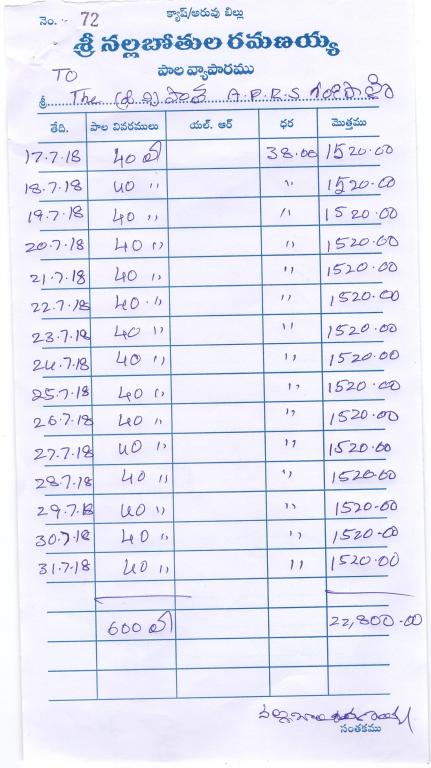 క్యాష్/అరువు బిల్లు
నెం. 72
శ్రీ నల్లబోతుల రమణయ్య
పాల వ్యాపారము
TO
శ్రీ The A.P.R.S
తేది. పాల వివరములు యల్. ఆర్ ధర మొత్తము
17.7.18 40 లీ 38.00 1520.00
18.7.18 40 " " 1520.00
19.7.18 40 " " 1520.00
20.7.18 40 " " 1520.00
21.7.18 40 " " 1520.00
22.7.18 40 " " 1520.00
23.7.18 40 " " 1520.00
24.7.18 40 " " 1520.00
25.7.18 40 " " 1520.00
26.7.18 40 " " 1520.00
27.7.18 40 " " 1520.00
28.7.18 40 " " 1520.00
29.7.18 40 " " 1520.00
30.7.18 40 " " 1520.00
31.7.18 40 " " 1520.00
600 లీ 22,800.00
సంతకము